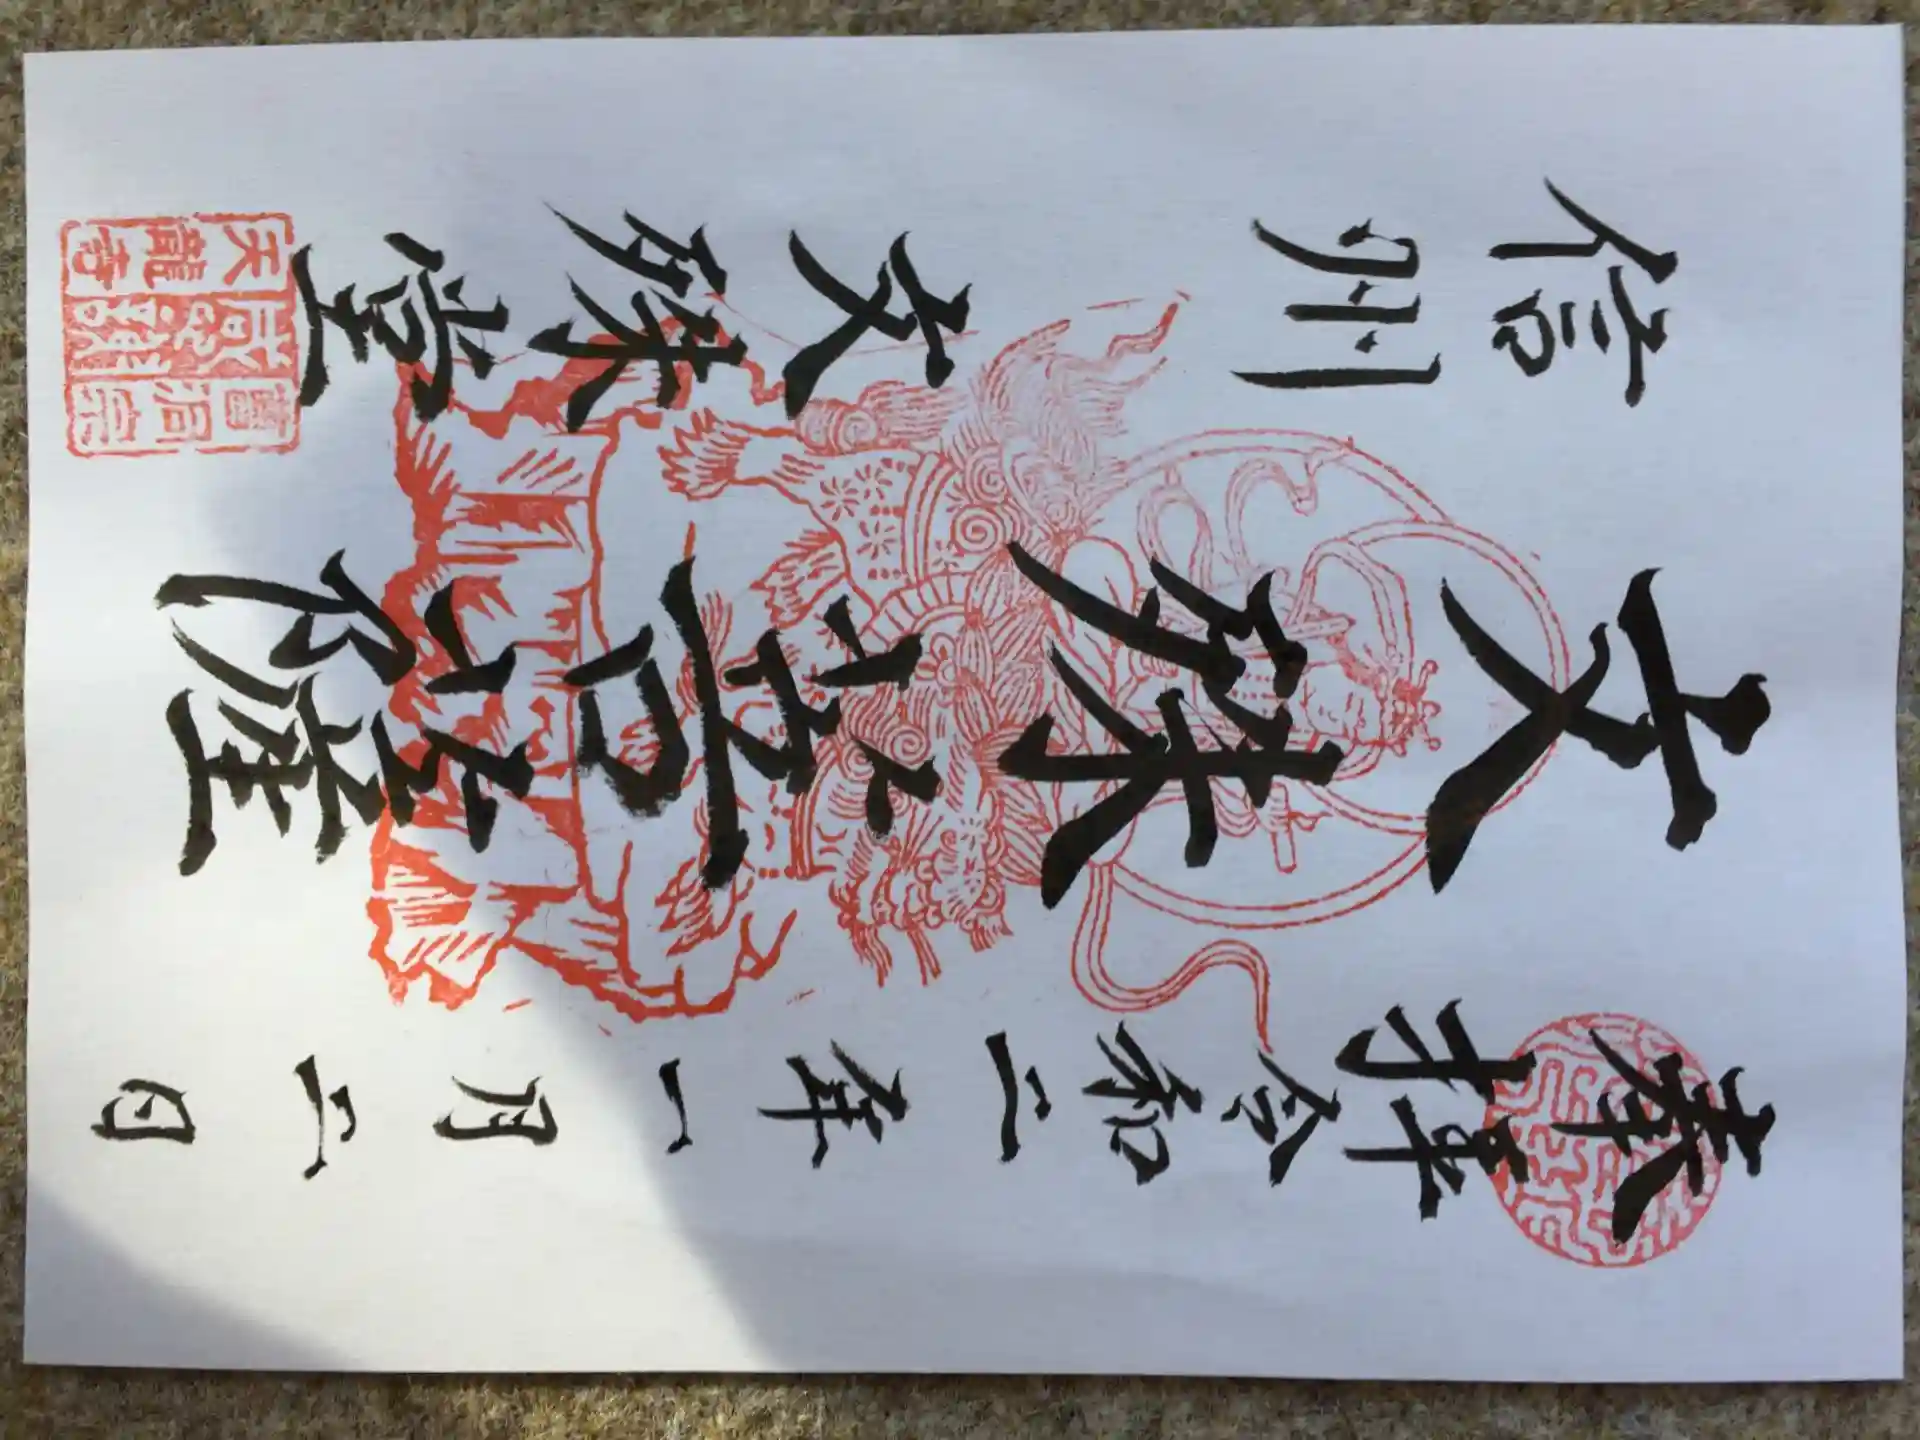 奉拝
令和二年一月二日
文殊菩薩
信州
文殊堂
曹洞宗
天龍寺